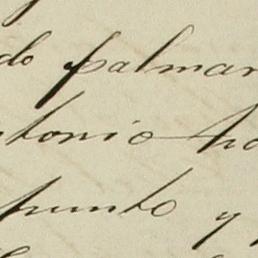 do palmar
ntonio
punto y